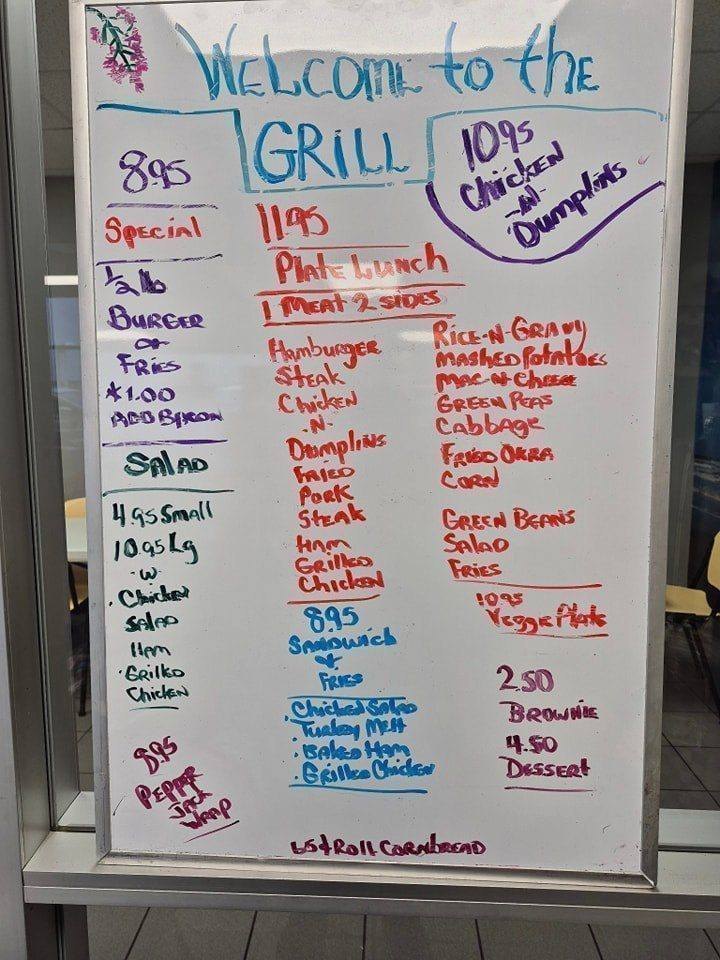 WELCOME to the
GRILL
8.95
SPECIAL
1/2 lb
BURGER
or
FRIES
*1.00
ADD BACON
SALAD
4.95 Small
10.95 Lg
·W·
·Chicken
SALAD
HAM
·GRILLED
CHICKEN
8.95
PEPPER
JACK
WRAP
11.95
PLATE LUNCH
1 MEAT 2 SIDES
HAMBURGER
STEAK
CHICKEN
·N·
DUMPLINS
FRIED
PORK
STEAK
HAM
GRILLED
CHICKEN
8.95
SANDWICH
&
FRIES
·Chicken SALAD
·TURKEY MELT
·BAKED HAM
·GRILLED CHICKEN
10.95
CHICKEN
-N-
Dumplins
RICE-N-GRAVY
MASHED POTATOES
MAC-N-CHEESE
GREEN PEAS
CABBAGE
FRIED OKRA
CORN
GREEN BEANS
SALAD
FRIES
10.95
VEGGE PLATE
2.50
BROWNIE
4.50
DESSERT
65¢ ROLL CORNBREAD